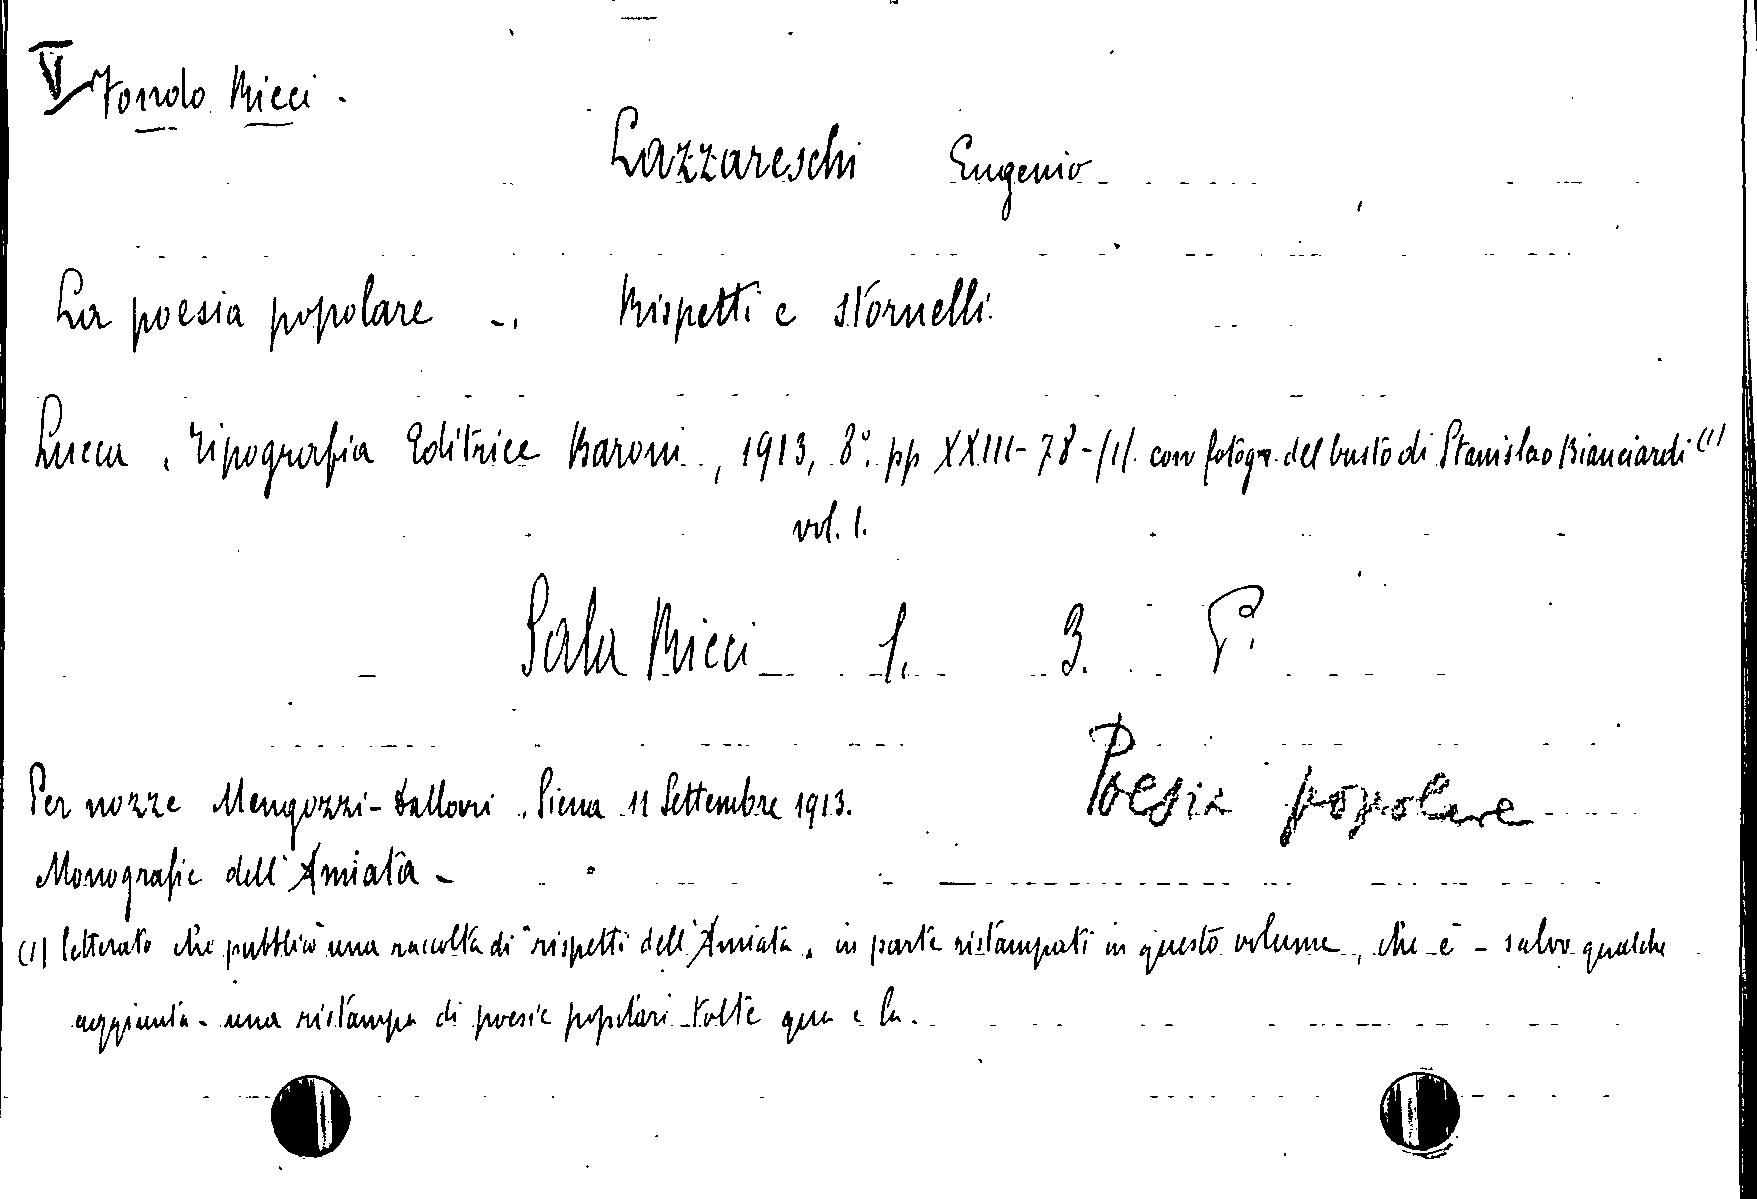 V Fondo Ricci.
Lazzareschi Eugenio
La poesia popolare -. Rispetti e stornelli.
Lucca. Tipografia Editrice Baroni, 1913, 8° pp XXIII-78-(1). con fotogr. del busto di Stanislao Bianciardi (1)
vol. 1.
Sala Ricci 1. 3.
Poesia popolare
Per nozze Mengozzi-Dallori. Siena 11 Settembre 1913.
Monografie dell'Amiata -
(1) letterato che pubblicò una raccolta di "rispetti dell'Amiata" in parte ristampati in questo volume, che è - salvo qualche
aggiunta - una ristampa di poesie popolari tolte qua e la.